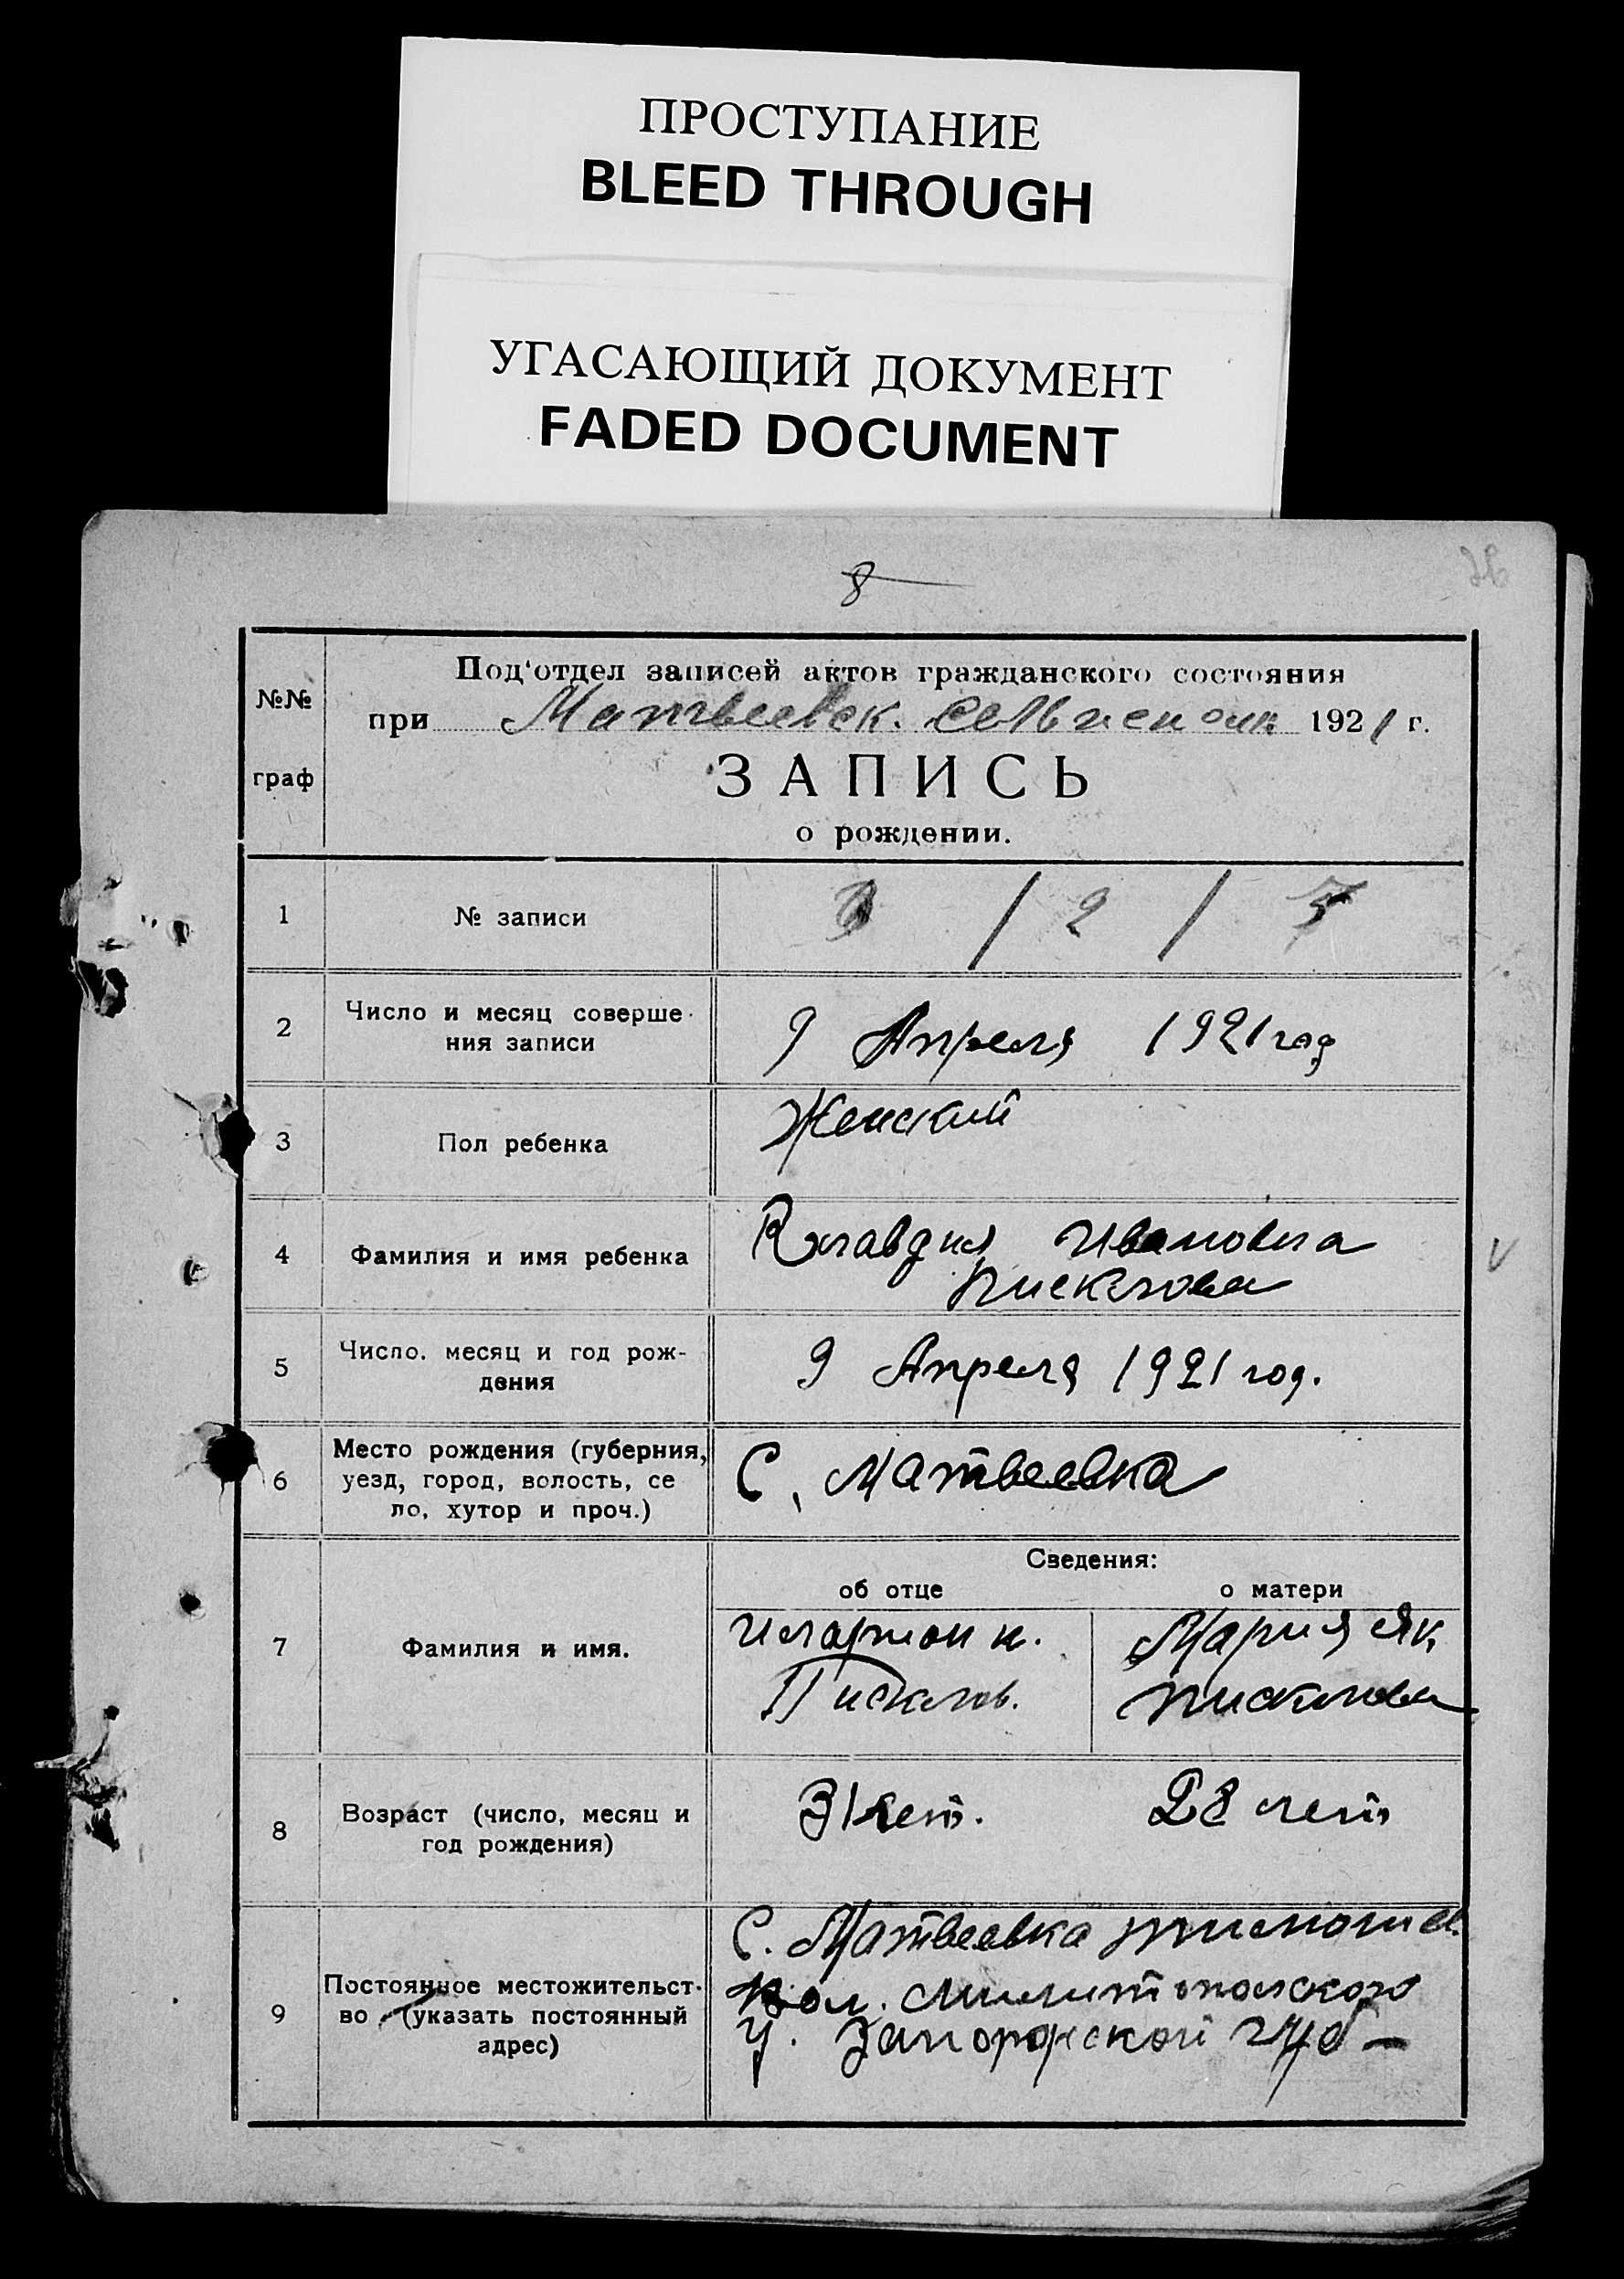 ПРОСТУПАНИЕ
BLEED THROUGH
УГАСАЮЩИЙ ДОКУМЕНТ
FADED DOCUMENT
8
№№
граф
Под‘отдел записей актов гражданского состояния
при Матвеевск. 1921 г.
ЗАПИСЬ
о рождении.
1
№ записи
/ 2 /
2
Число и месяц соверше-
ния записи
9 Апреля 1921 год
3
Пол ребенка
Женский
4
Фамилия и имя ребенка
Клавдия Ивановна
Писклова
5
Число. месяц и год рож-
дения
9 Апреля 1921 год.
6
Место рождения (губерния,
уезд, город, волость, се
ло, хутор и проч.)
С. Матвеевка
Сведения:
об отце
о матери
7
Фамилия и имя.
Иларион и.
Писклов.
Мария Як.
Писклова
8
Возраст (число, месяц и
год рождения)
31 лет.
28 лет
9
Постоянное местожительст-
во (указать постоянный
адрес)
С. Матвеевка
Вол. Милитопольского
У. Запорожской губ –